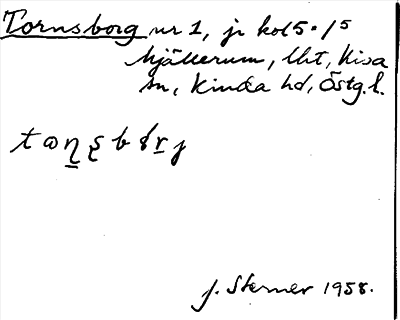 Tornsborg nr 1, jr kol 5 • / 5
Mjällerum, lht, Kisa
sn, Kinda hd, Östg.l.
J. Sterner 1958.